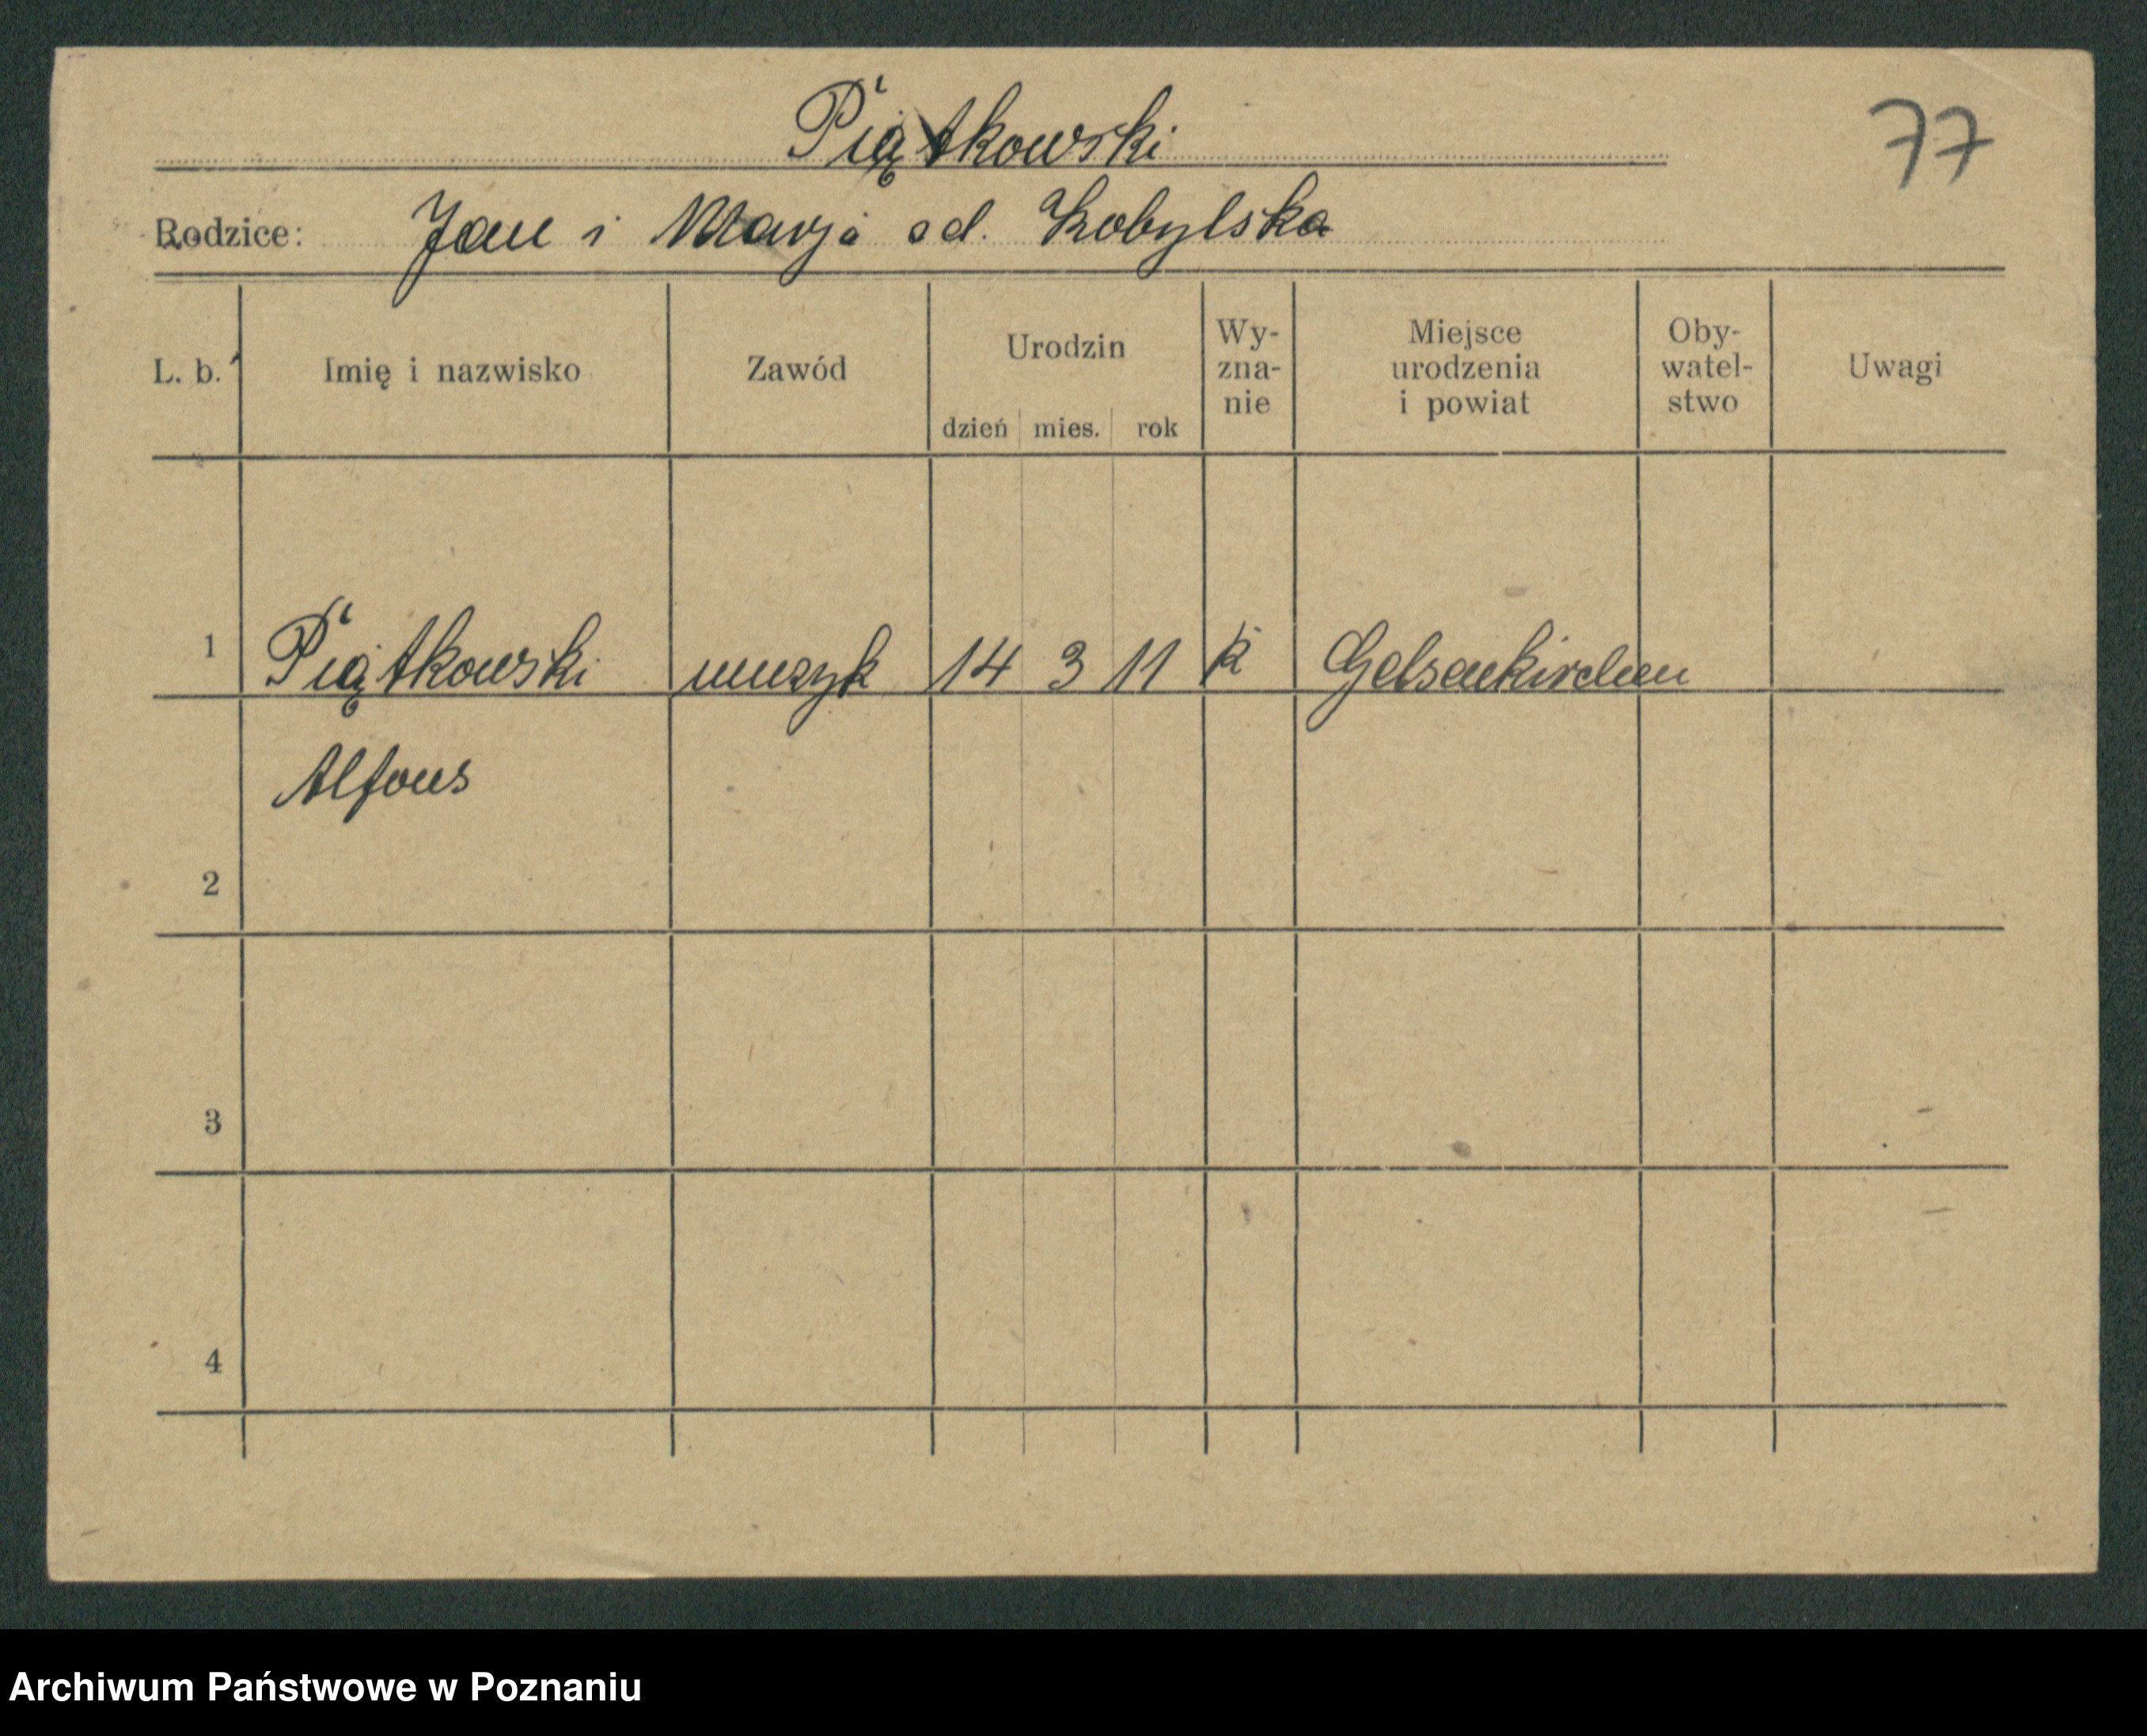 Piątkowski
77
Rodzice: Jan i Marja od. Kobylska
L. b. Imię i nazwisko Zawód Urodzin dzień mies. rok Wy-zna-nie Miejsce urodzenia i powiat Oby-watel-stwo Uwagi
1 Piątkowski muzyk 14 3 11 k Gelsenkirchen
Alfons
2
3
4
Archiwum Państwowe w Poznaniu